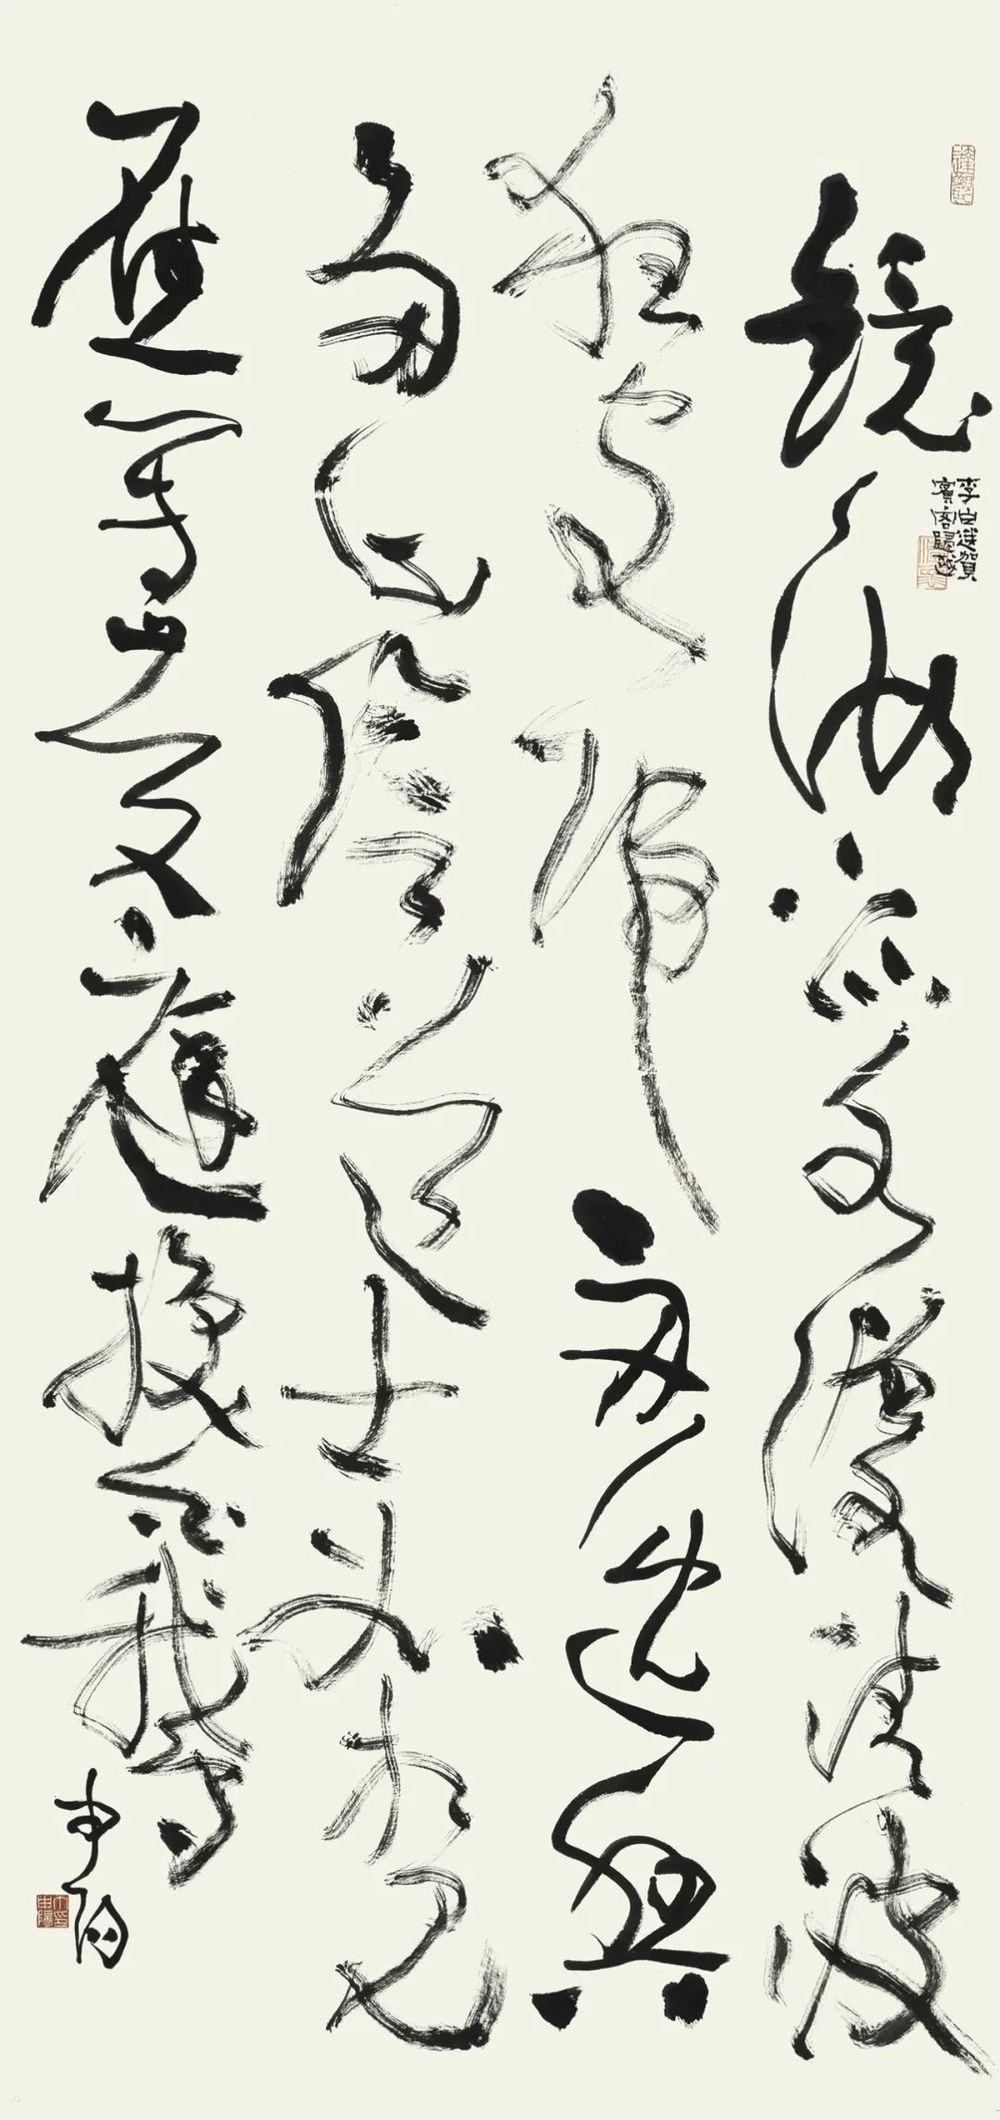 鏡湖流水漾清波
狂客歸舟逸興
多山陰道士如相見
應寫黃庭換白鵝
李白送賀
賓客歸越